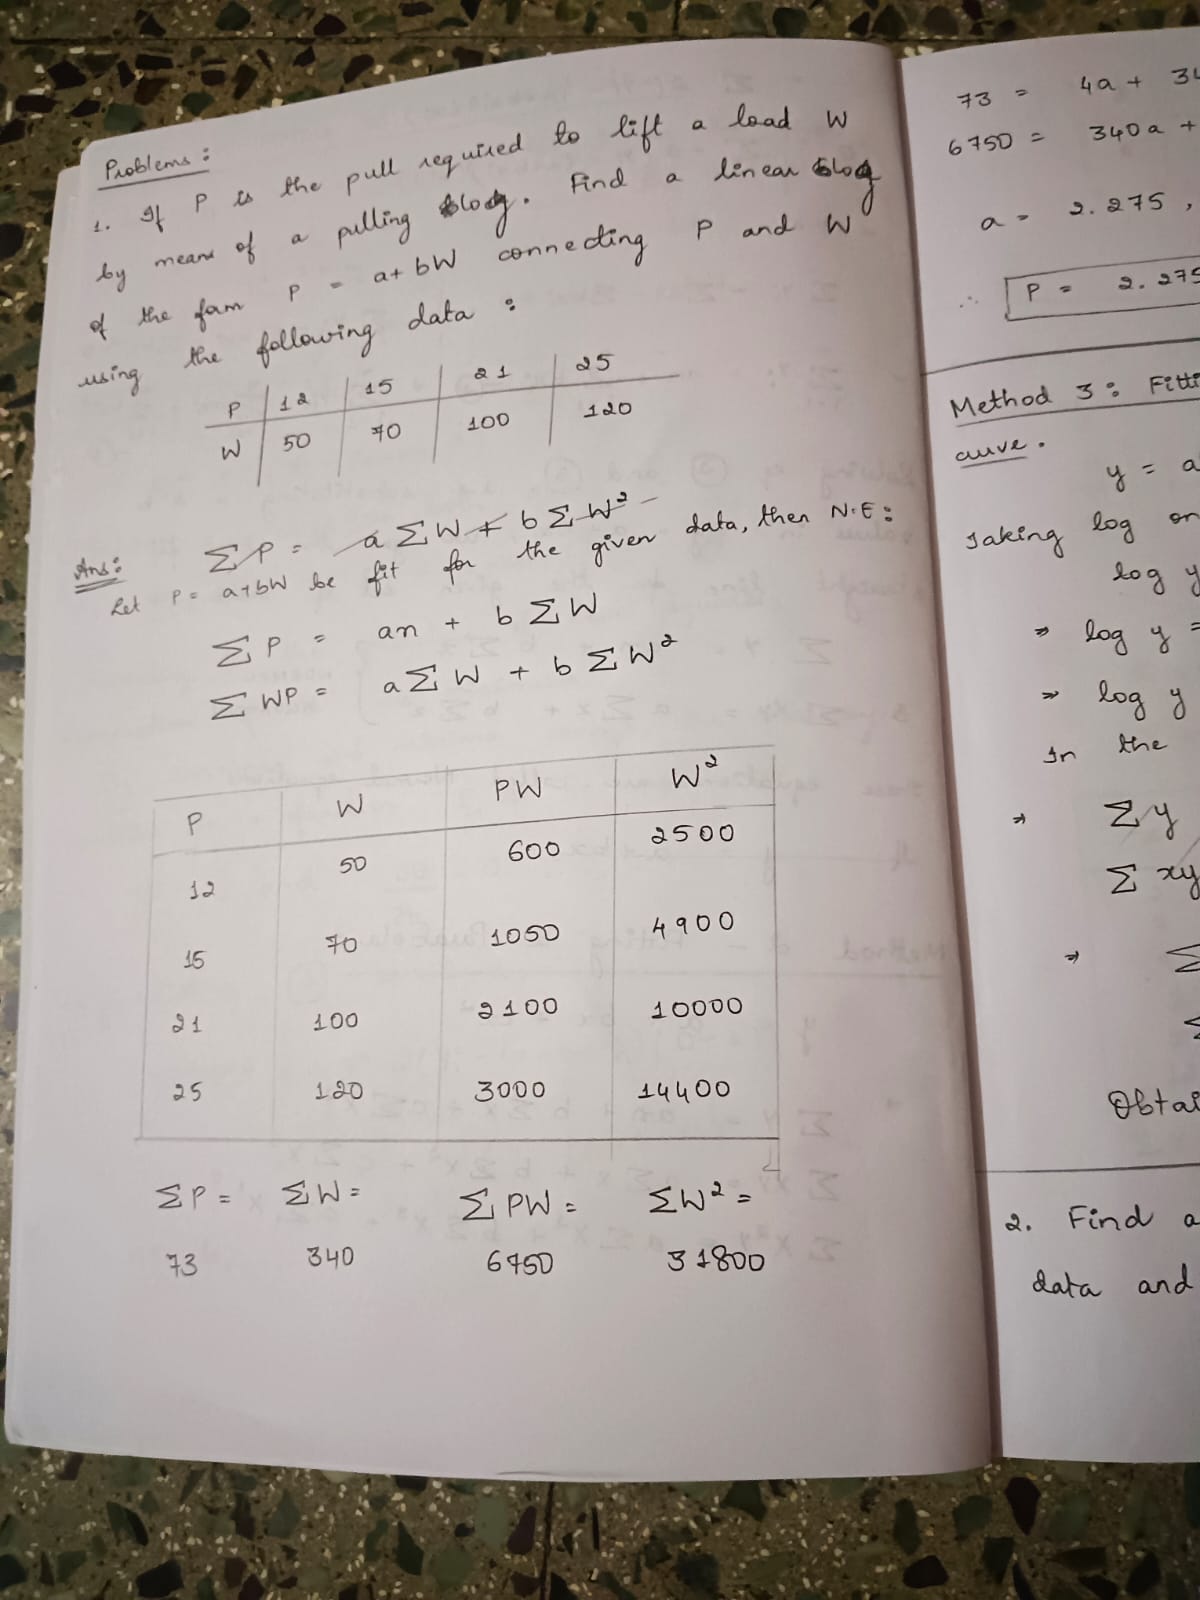 Problems :
1. If P is the pull required to lift a load W
by means of a pulling block. Find a linear block
of the form P = a+bW connecting P and W
using the following data :
P 12 15 21 25
W 50 70 100 120
Ans: ΣP = aΣW + bΣW²
Let P = a+bW be fit for the given data, then N.E:
ΣP = an + bΣW
ΣWP = aΣW + bΣW²
P W PW W²
12 50 600 2500
15 70 1050 4900
21 100 2100 10000
25 120 3000 14400
ΣP = ΣW = ΣPW = ΣW² =
73 340 6750 31800
73 = 4a + 34
6750 = 340a +
a = 2.275,
∴ P = 2.275
Method 3: Fitti
curve.
y = a
Taking log on
log y
⇒ log y =
⇒ log y
In the
⇒ Σy
Σxy
⇒ Σ
Σ
Obtai
2. Find a
data and